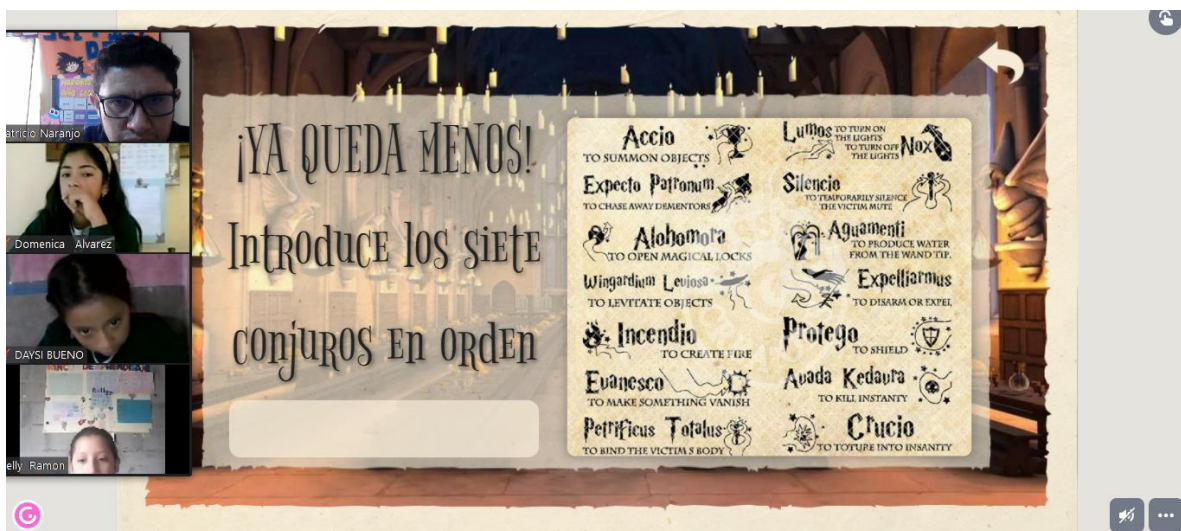 atricio Naranjo
Domenica Alvarez
DAYSI BUENO
elly Ramon
¡YA QUEDA MENOS!
Introduce los siete
conjuros en orden
Accio
TO SUMMON OBJECTS
Expecto Patronum
TO CHASE AWAY DEMENTORS
Alohomora
TO OPEN MAGICAL LOCKS
Wingardium Leviosa
TO LEVITATE OBJECTS
Incendio
TO CREATE FIRE
Evanesco
TO MAKE SOMETHING VANISH
Petrificus Totalus
TO BIND THE VICTIM S BODY
Lumos TO TURN ON
THE LIGHTS
TO TURN OFF
THE LIGHTS Nox
Silencio
TO TEMPORARILY SILENCE
THE VICTIM MUTE
Aguamenti
TO PRODUCE WATER
FROM THE WAND TIP.
Expelliarmus
TO DISARM OR EXPEL
Protego
TO SHIELD
Avada Kedavra
TO KILL INSTANTY
Crucio
TO TOTURE INTO INSANITY